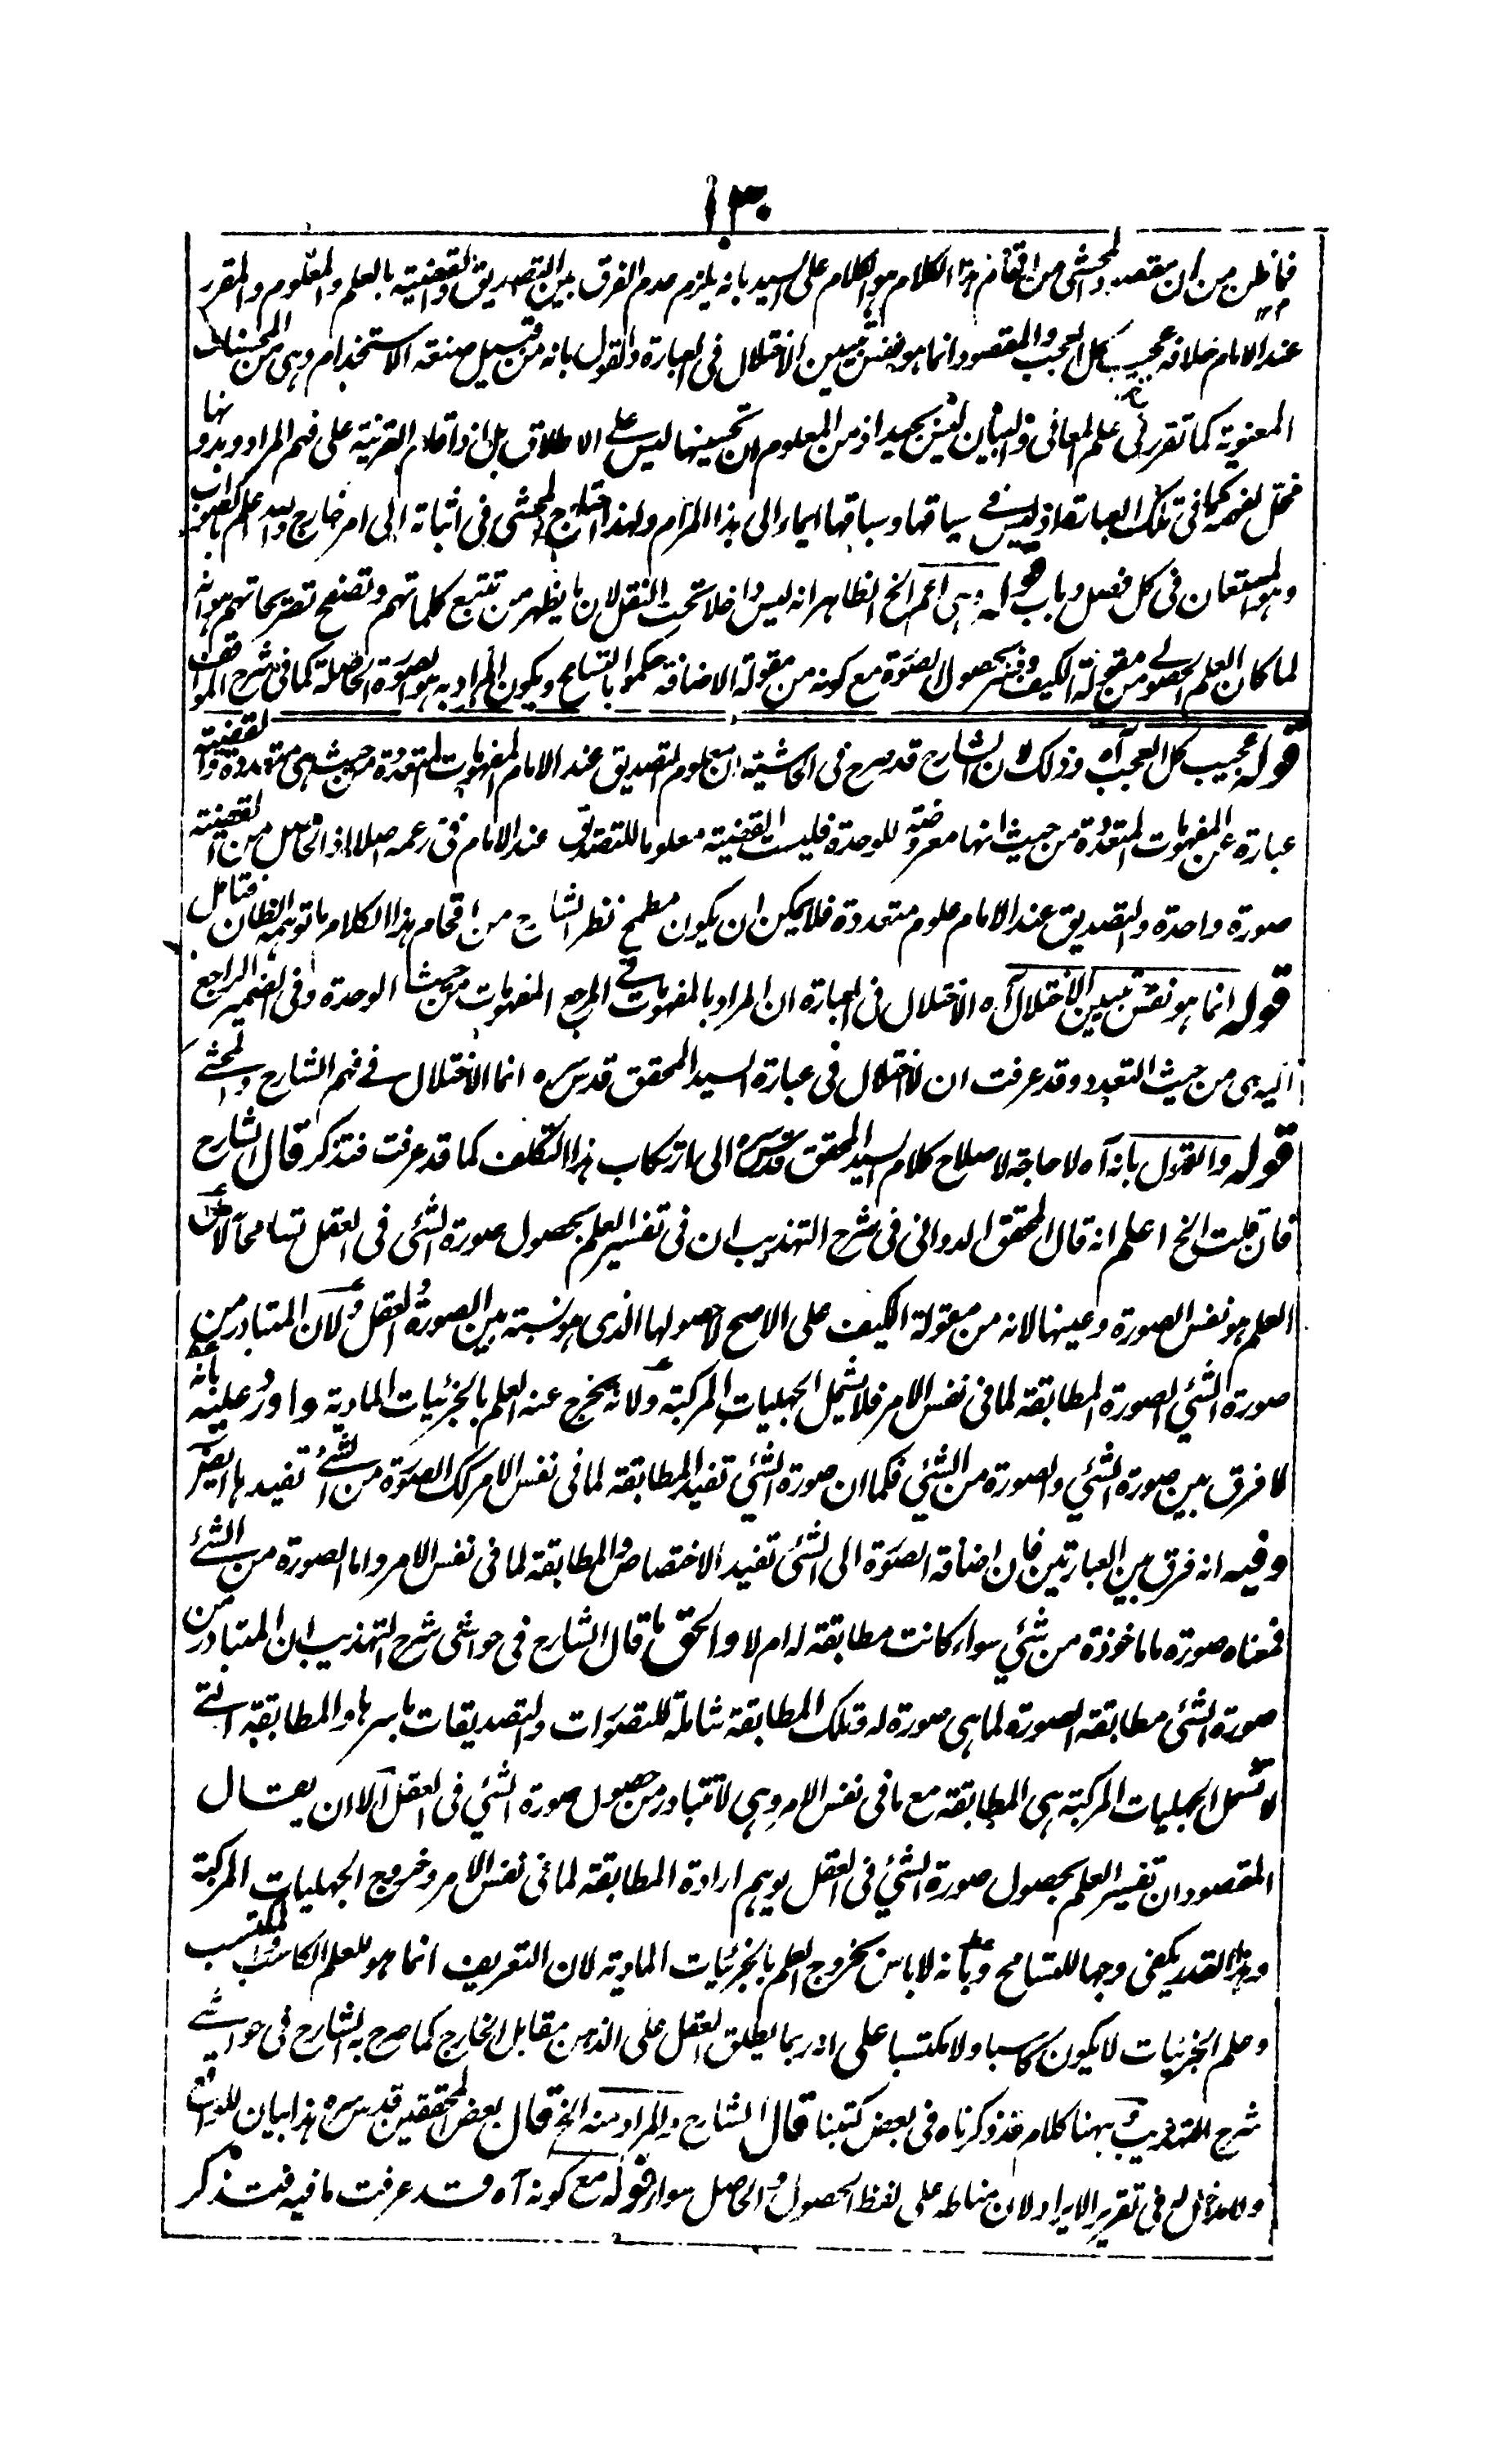 ١٣٠
فما ظن من ان مقصد المحشى من اقحام هذا الكلام هو الكلام على السيد بانه يلزم عدم الفرق بين التصديق والقضية بالعلم والمعلوم والمقرر
عند الامام خلافه عجيب كل العجب والمقصود انما هو نفس تبيين الاختلال فى العبارة والقول بانه من قبيل صنعة الاستخدام وهى من المحسنات
المعنوية كما تقرر فى علم المعانى والبيان ليس بجيد اذ من المعلوم ان تحسينها ليس على الاطلاق بل اذا قام القرينة على فهم المراد وبدونها
مخل لفهمه كما فى تلك العبارة اذ ليس فى سياقها وسباقها ايماء الى هذا المرام ولهذا احتاج المحشى فى اثباته الى امر خارج والله اعلم بالصواب
وهو المستعان فى كل فصل وباب قوله وهى اعم الخ الظاهر انه ليس داخلا تحت النقل لان ما يظهر من تتبع كلماتهم وتصفح تصريحاتهم هو انه
لما كان العلم الحصولى من مقولة الكيف وفسر بحصول الصورة مع كونه من مقولة الاضافة حكموا بالتسامح ويكون المراد به هو الصورة الحاصلة كما فى شرح المواقف
قوله عجيب كل العجب آه وذلك لان الشارح قد صرح فى الحاشية ان معلوم التصديق عند الامام المفهومات المتعددة من حيث هى متعددة والقضية
عبارة عن المفهومات المتعددة من حيث انها معروضة للوحدة فليست القضية معلوما للتصديق عند الامام فى زعمه اصلا اذ الحاصل من القضية
صورة واحدة والتصديق عند الامام علوم متعددة فلا يمكن ان يكون مطمح نظر الشارح من اقحام هذا الكلام ما توهمه الظان فتامل
قوله انما هو نفس تبيين الاختلال آه الاختلال فى العبارة ان المراد بالمفهومات فى المرجع المفهومات من حيث الوحدة وفى الضمير الراجع
اليه هى من حيث التعدد وقد عرفت ان لا اختلال فى عبارة السيد المحقق قدس سره انما الاختلال فى فهم الشارح والمحشى
قوله والقول بانه آه لا حاجة لاصلاح كلام السيد المحقق قدس سره الى ارتكاب هذا التكلف كما قد عرفت فتذكر قال الشارح
فان قلت الخ اعلم انه قال المحقق الدوانى فى شرح التهذيب ان فى تفسير العلم بحصول صورة الشئ فى العقل تسامحا لان
العلم هو نفس الصورة وعينها لانه من مقولة الكيف على الاصح لا حصولها الذى هو نسبة بين الصورة والعقل ولان المتبادر من
صورة الشئ الصورة المطابقة لما فى نفس الامر فلا يشمل الجهليات المركبة ولانه يخرج عنه العلم بالجزئيات المادية واورد عليه بانه
لا فرق بين صورة الشئ والصورة من الشئ فكما ان صورة الشئ تفيد المطابقة لما فى نفس الامر كك الصورة من الشئ تفيدها ايضا
وفيه انه فرق بين العبارتين فان اضافة الصورة الى الشئ تفيد الاختصاص والمطابقة لما فى نفس الامر واما الصورة من الشئ
فمعناه صورة ما ماخوذة من شئ سواء كانت مطابقة له ام لا والحق ما قال الشارح فى حواشى شرح التهذيب ان المتبادر من
صورة الشئ مطابقة الصورة لما هى صورة له وتلك المطابقة شاملة للتصورات والتصديقات باسرها والمطابقة التى
لا تشمل الجهليات المركبة هى المطابقة مع ما فى نفس الامر وهى لا تتبادر من حصول صورة الشئ فى العقل الا ان يقال
المقصود ان تفسير العلم بحصول صورة الشئ فى العقل يوهم ارادة المطابقة لما فى نفس الامر وخروج الجهليات المركبة
وهذا القدر يكفى وجها للتسامح وبانه لا باس بخروج العلم بالجزئيات المادية لان التعريف انما هو للعلم الكاسب والمكتسب
وعلم الجزئيات لا يكون كاسبا ولا مكتسبا على انه ربما يطلق العقل على الذهن مقابل الخارج كما صرح به الشارح فى حواشى
شرح التهذيب وههنا كلام قد ذكرناه فى بعض كتبنا قال الشارح والمراد منه الخ قال بعض المحققين قدس سره هذا بيان للواقع
ولا مدخل له فى تقرير الايراد لان مناطه على لفظ الحصول والحاصل سواء قوله مع كونه آه قد عرفت ما فيه فتذكر